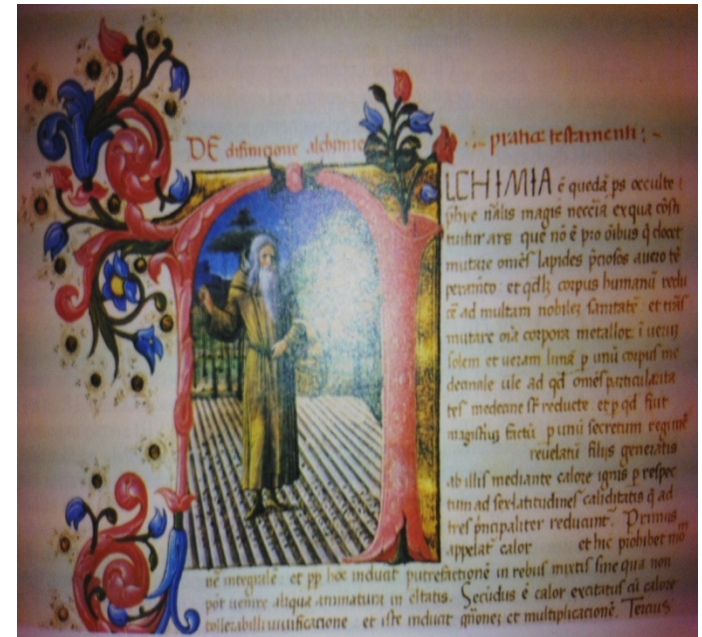 DE difinicione alchimie pratice testamenti :~
LCHIMIA ē quedā ps occulte
phīe nālis magis neccīa ex qua cōsti
tuitur ars que nō ē pro oībus q̄ docet
mutare omēs lapides p̄ciosos a vero tē
peramēto et qdlꝫ corpus humanū redu
cē ad multam nobilez sanitatē et trās
mutare oīa corpora metalloꝝ ī verū
solem et veram lunā p unū corpus me
dicinale ule ad qd omēs particularita
tes medicine st̄ reducte et p qd fuit
magistiū factū p unū secretum regimē
revelatū filijs generatis
ab illis mediante calore ignis p respec
tum ad sex latitudines caliditatis q̄ ad
tres p̄ncipaliter reducūnt. Primus
appelat̄ calor et hic prohibet
nē integralē et pp hoc inducit putrefactionē in rebus mixtis sine qua non
pōt venire aliqua animatura in eltatis. Secūdus ē calor excitatus cū calore
tollerabili vivificatione et iste inducit et multiplicacionē. Tercius